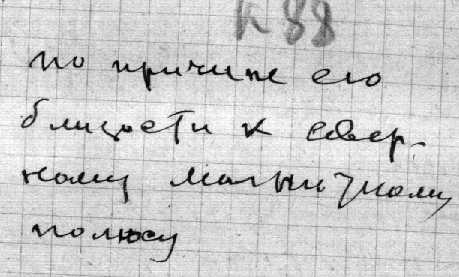 К 88
по причине его
близости к север-
ному магнитному
полюсу